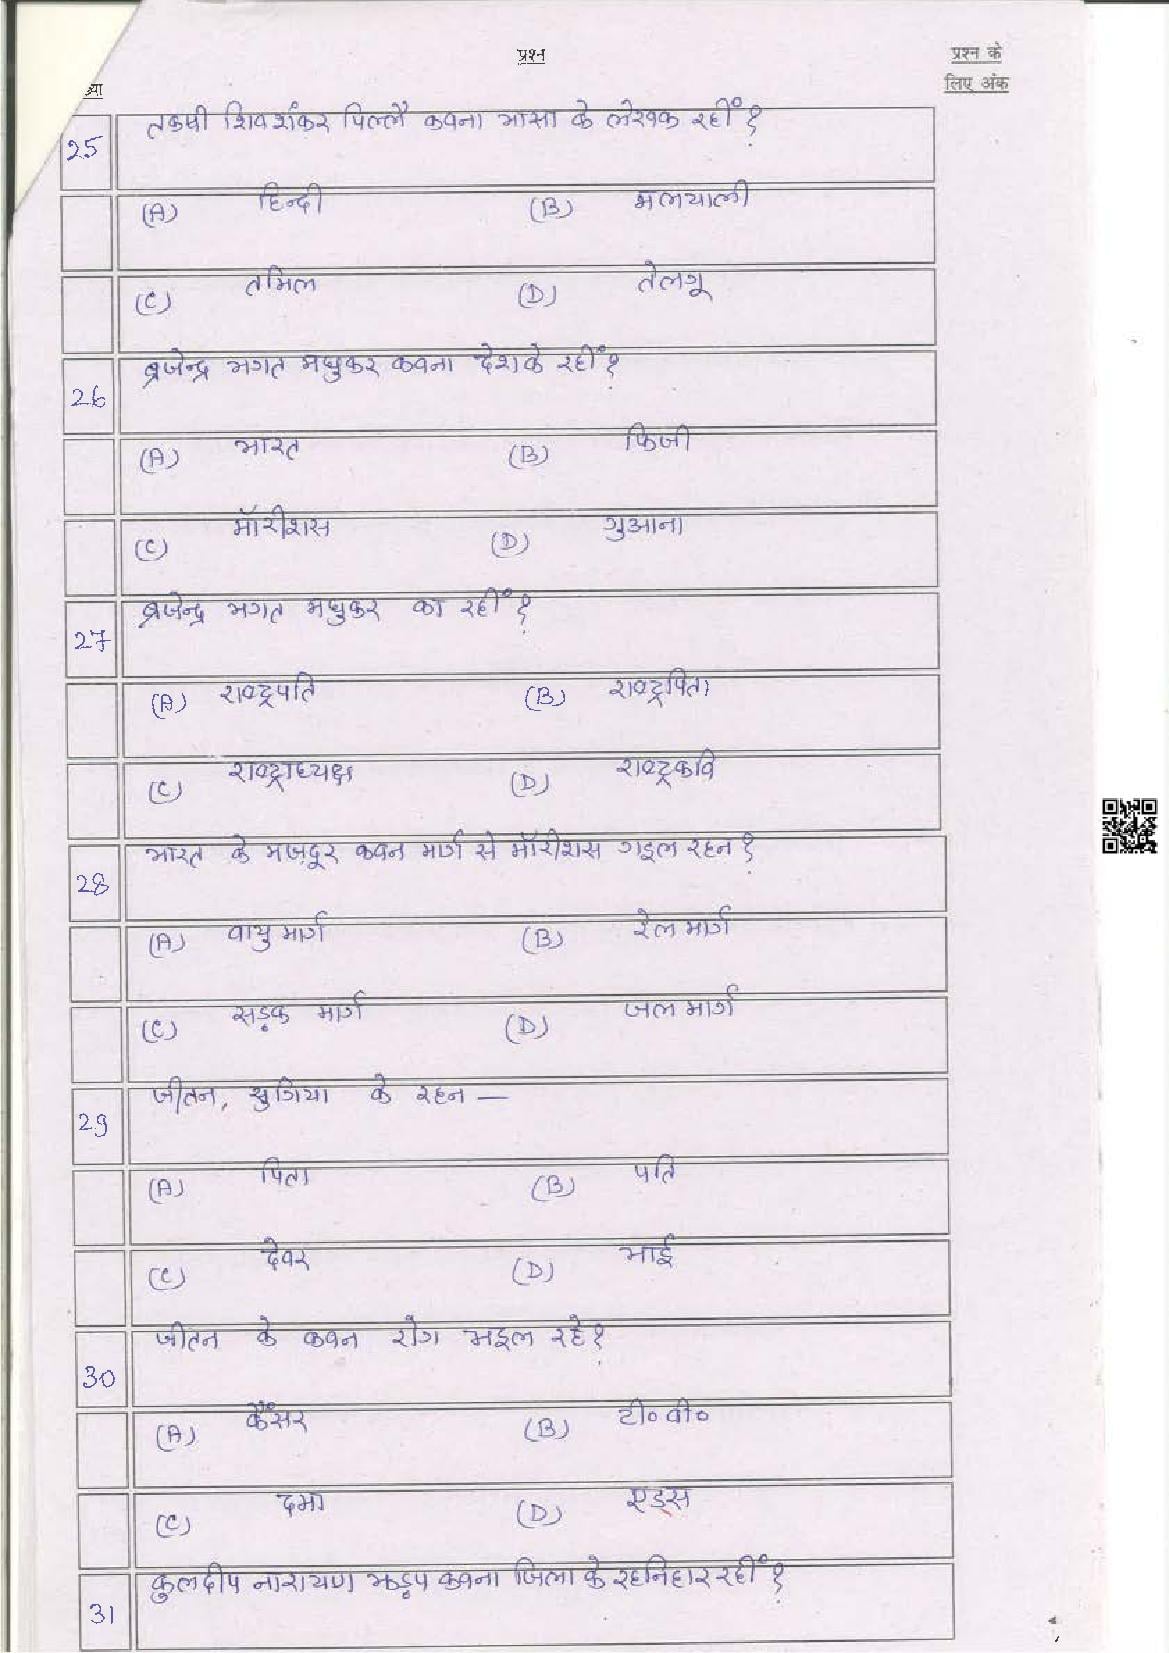 प्रश्न
प्रश्न के
लिए अंक
ख्या
25 तकषी शिवशंकर पिल्लै कवना भासा के लेखक रहीं ?
(A) हिन्दी (B) मलयाली
(C) तमिल (D) तेलगू
26 ब्रजेन्द्र भगत मधुकर कवना देश के रहीं ?
(A) भारत (B) फिजी
(C) मॉरीशस (D) गुआना
27 ब्रजेन्द्र भगत मधुकर का रहीं ?
(A) राष्ट्रपति (B) राष्ट्रपिता
(C) राष्ट्राध्यक्ष (D) राष्ट्रकवि
28 भारत के मजदूर कवन मार्ग से मॉरीशस गइल रहन ?
(A) वायु मार्ग (B) रेल मार्ग
(C) सड़क मार्ग (D) जल मार्ग
29 जीतन, सुगिया के रहन —
(A) पिता (B) पति
(C) देवर (D) भाई
30 जीतन के कवन रोग भइल रहे ?
(A) कैंसर (B) टी० वी०
(C) दमा (D) एड्स
31 कुलदीप नारायण झड़प कवना जिला के रहनिहार रहीं ?